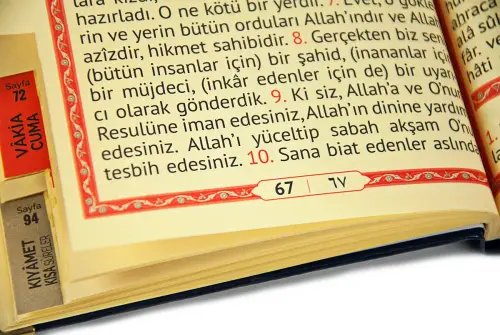 hazırladı. O ne kötü bir yerdir. 7. Evet, o gökle
rin ve yerin bütün orduları Allah'ındır ve Allah
azîzdir, hikmet sahibidir. 8. Gerçekten biz sen
(bütün insanlar için) bir şahid, (inananlar içi
bir müjdeci, (inkâr edenler için de) bir uyarı
cı olarak gönderdik. 9. Ki siz, Allah'a ve O'nu
Resulüne iman edesiniz, Allah'ın dinine yardım
edesiniz. Allah'ı yüceltip sabah akşam O'nu
tesbih edesiniz. 10. Sana biat edenler aslında
67 | ٦٧
Sayfa
72
VÂKIA
CUMA
Sayfa
94
KIYÂMET
KISA SÛRELER